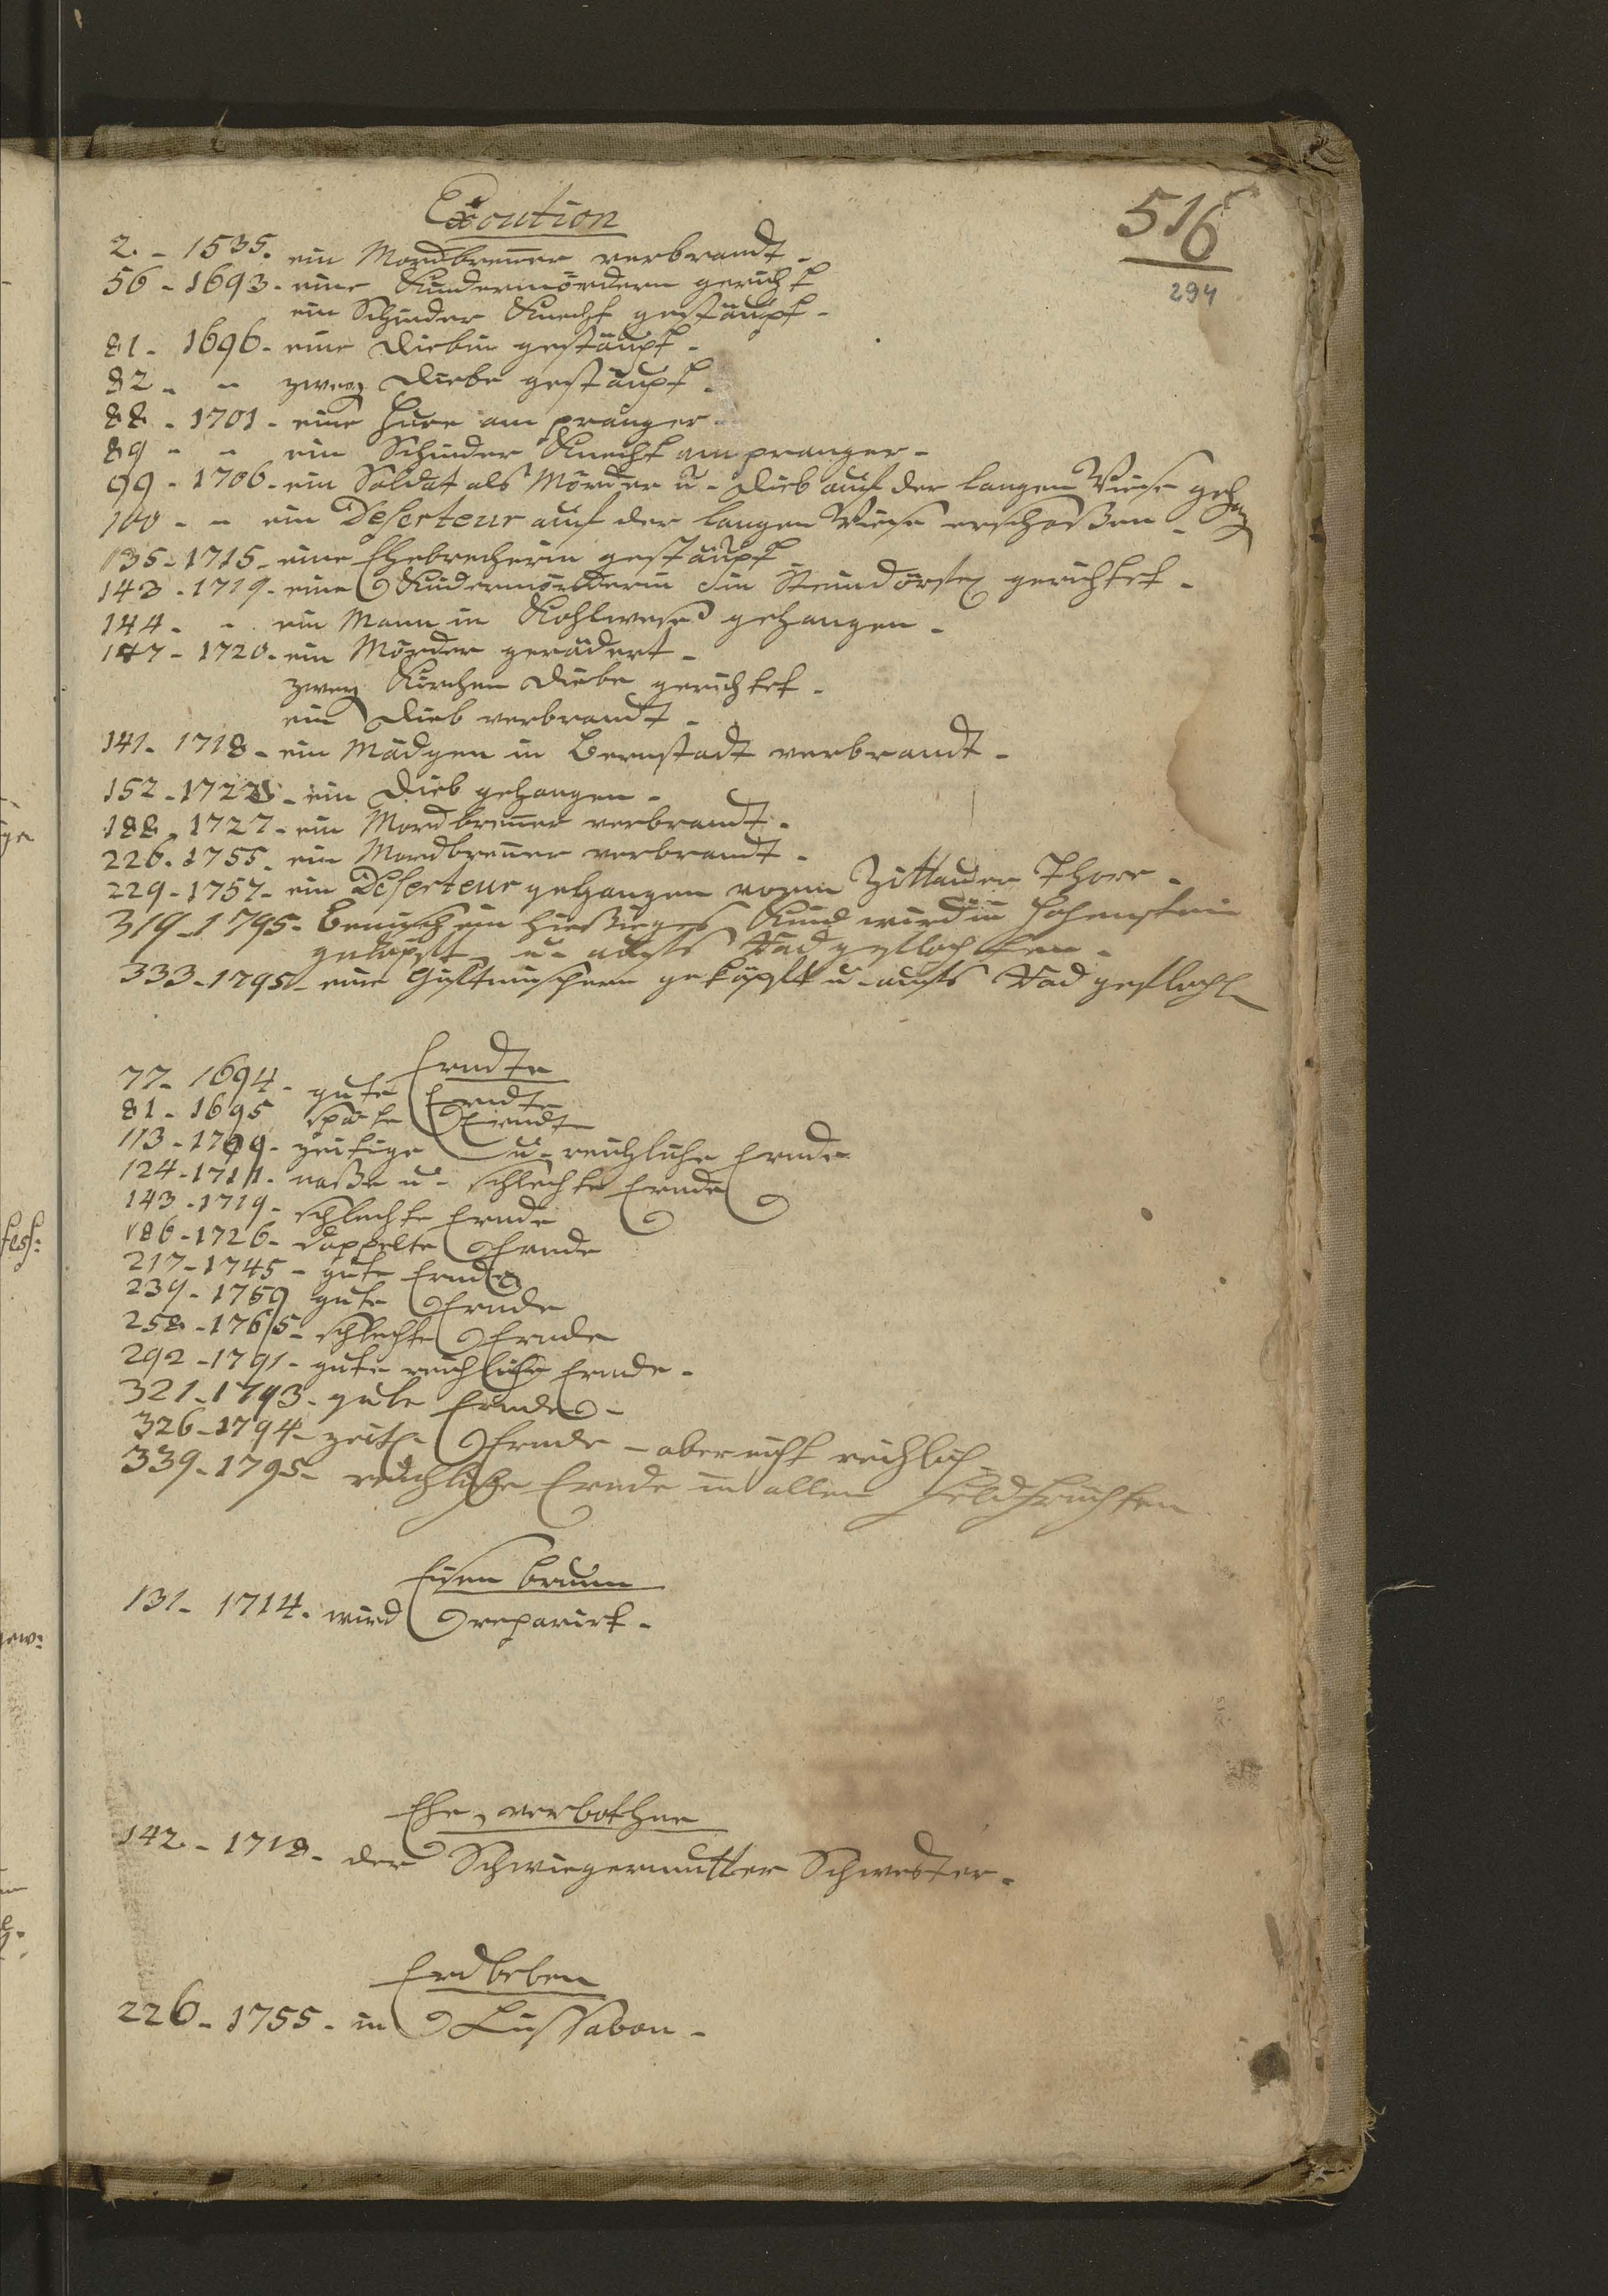 516
294
Execution
2. - 1535. ein Mordbrenner verbrandt -
56 - 1693 - eine Kindermördern gericht
ein Schinder Knecht gestäupt -
81 - 1696 - eine Diebin gestäupt -
82 - - zwey Diebe gestäupt -
88 - 1701 - eine Hure am pranger -
89 - - ein Schinder Knecht am pranger -
99 - 1706 - ein Soldat als Mörder u - Dieb auf der langen Viese geh
100 - - ein Deserteur auf der langen Viese erschoßen -
135 - 1715 - eine Ehebrecherin gestäupt -
143 - 1719 - eine Kindermörderin in gerichtet -
144 - - ein Mann in Kohlwese gehangen -
147 - 1720 - ein Mörder gerädert -
zwey Kirchen Diebe gerichtet -
ein Dieb verbrandt -
141 - 1718 - ein Mädgen in Bernstadt verbrandt -
152 - 1722 - ein Dieb gehangen -
188 - 1727 - ein Mordbrenner verbrandt -
226 - 1755 - ein Mordbrenner verbrandt -
229 - 1757 - ein Deserteur gehangen vorm Zittauer Thore -
319 - 1795 - ein hießieges Kind wird in Hohenstein
geköpft u - aufs Rad geflochten -
333 - 1795 - eine Giftmischern geköpft u - aufs Rad geflocht
Erndte
77 - 1694 - gute Erndte
81 - 1695 späte Erndte
113 - 1709 - zeitige u - reichliche Ernde
124 - 1711 - naße u - schlechte Ernde
143 - 1719 - schlechte Ernde
186 - 1726 - doppelte Ernde
217 - 1745 - gute Ernde
239 - 1759 gute Ernde
258 - 1765 - schlechte Ernde
292 - 1791 - gute reichliche Ernde -
321 - 1793 - gute Ernde -
326 - 1794 - zeit. Ernde - aber nicht reichlich -
339 - 1795 - reichliche Ernde in allen Feldfrüchten
Eisen brunn
131 - 1714 - wird reparirt -
Ehe, verbothne
142 - 1718 - der Schwiegermutter Schwester -
Erdbeben
226 - 1755 - in Lissabon -